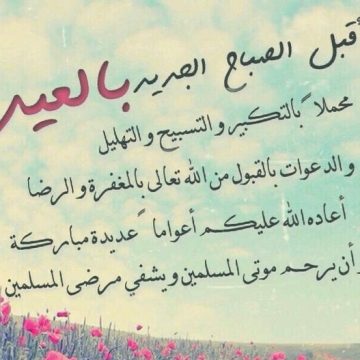 أقبل الصباح الجديد بالعيد
محملاً بالتكبير والتسبيح والتهليل
والدعوات بالقبول من الله تعالى بالمغفرة والرضا
أعاده الله عليكم أعواماً عديدة مباركة
أن يرحم موتى المسلمين ويشفي مرضى المسلمين